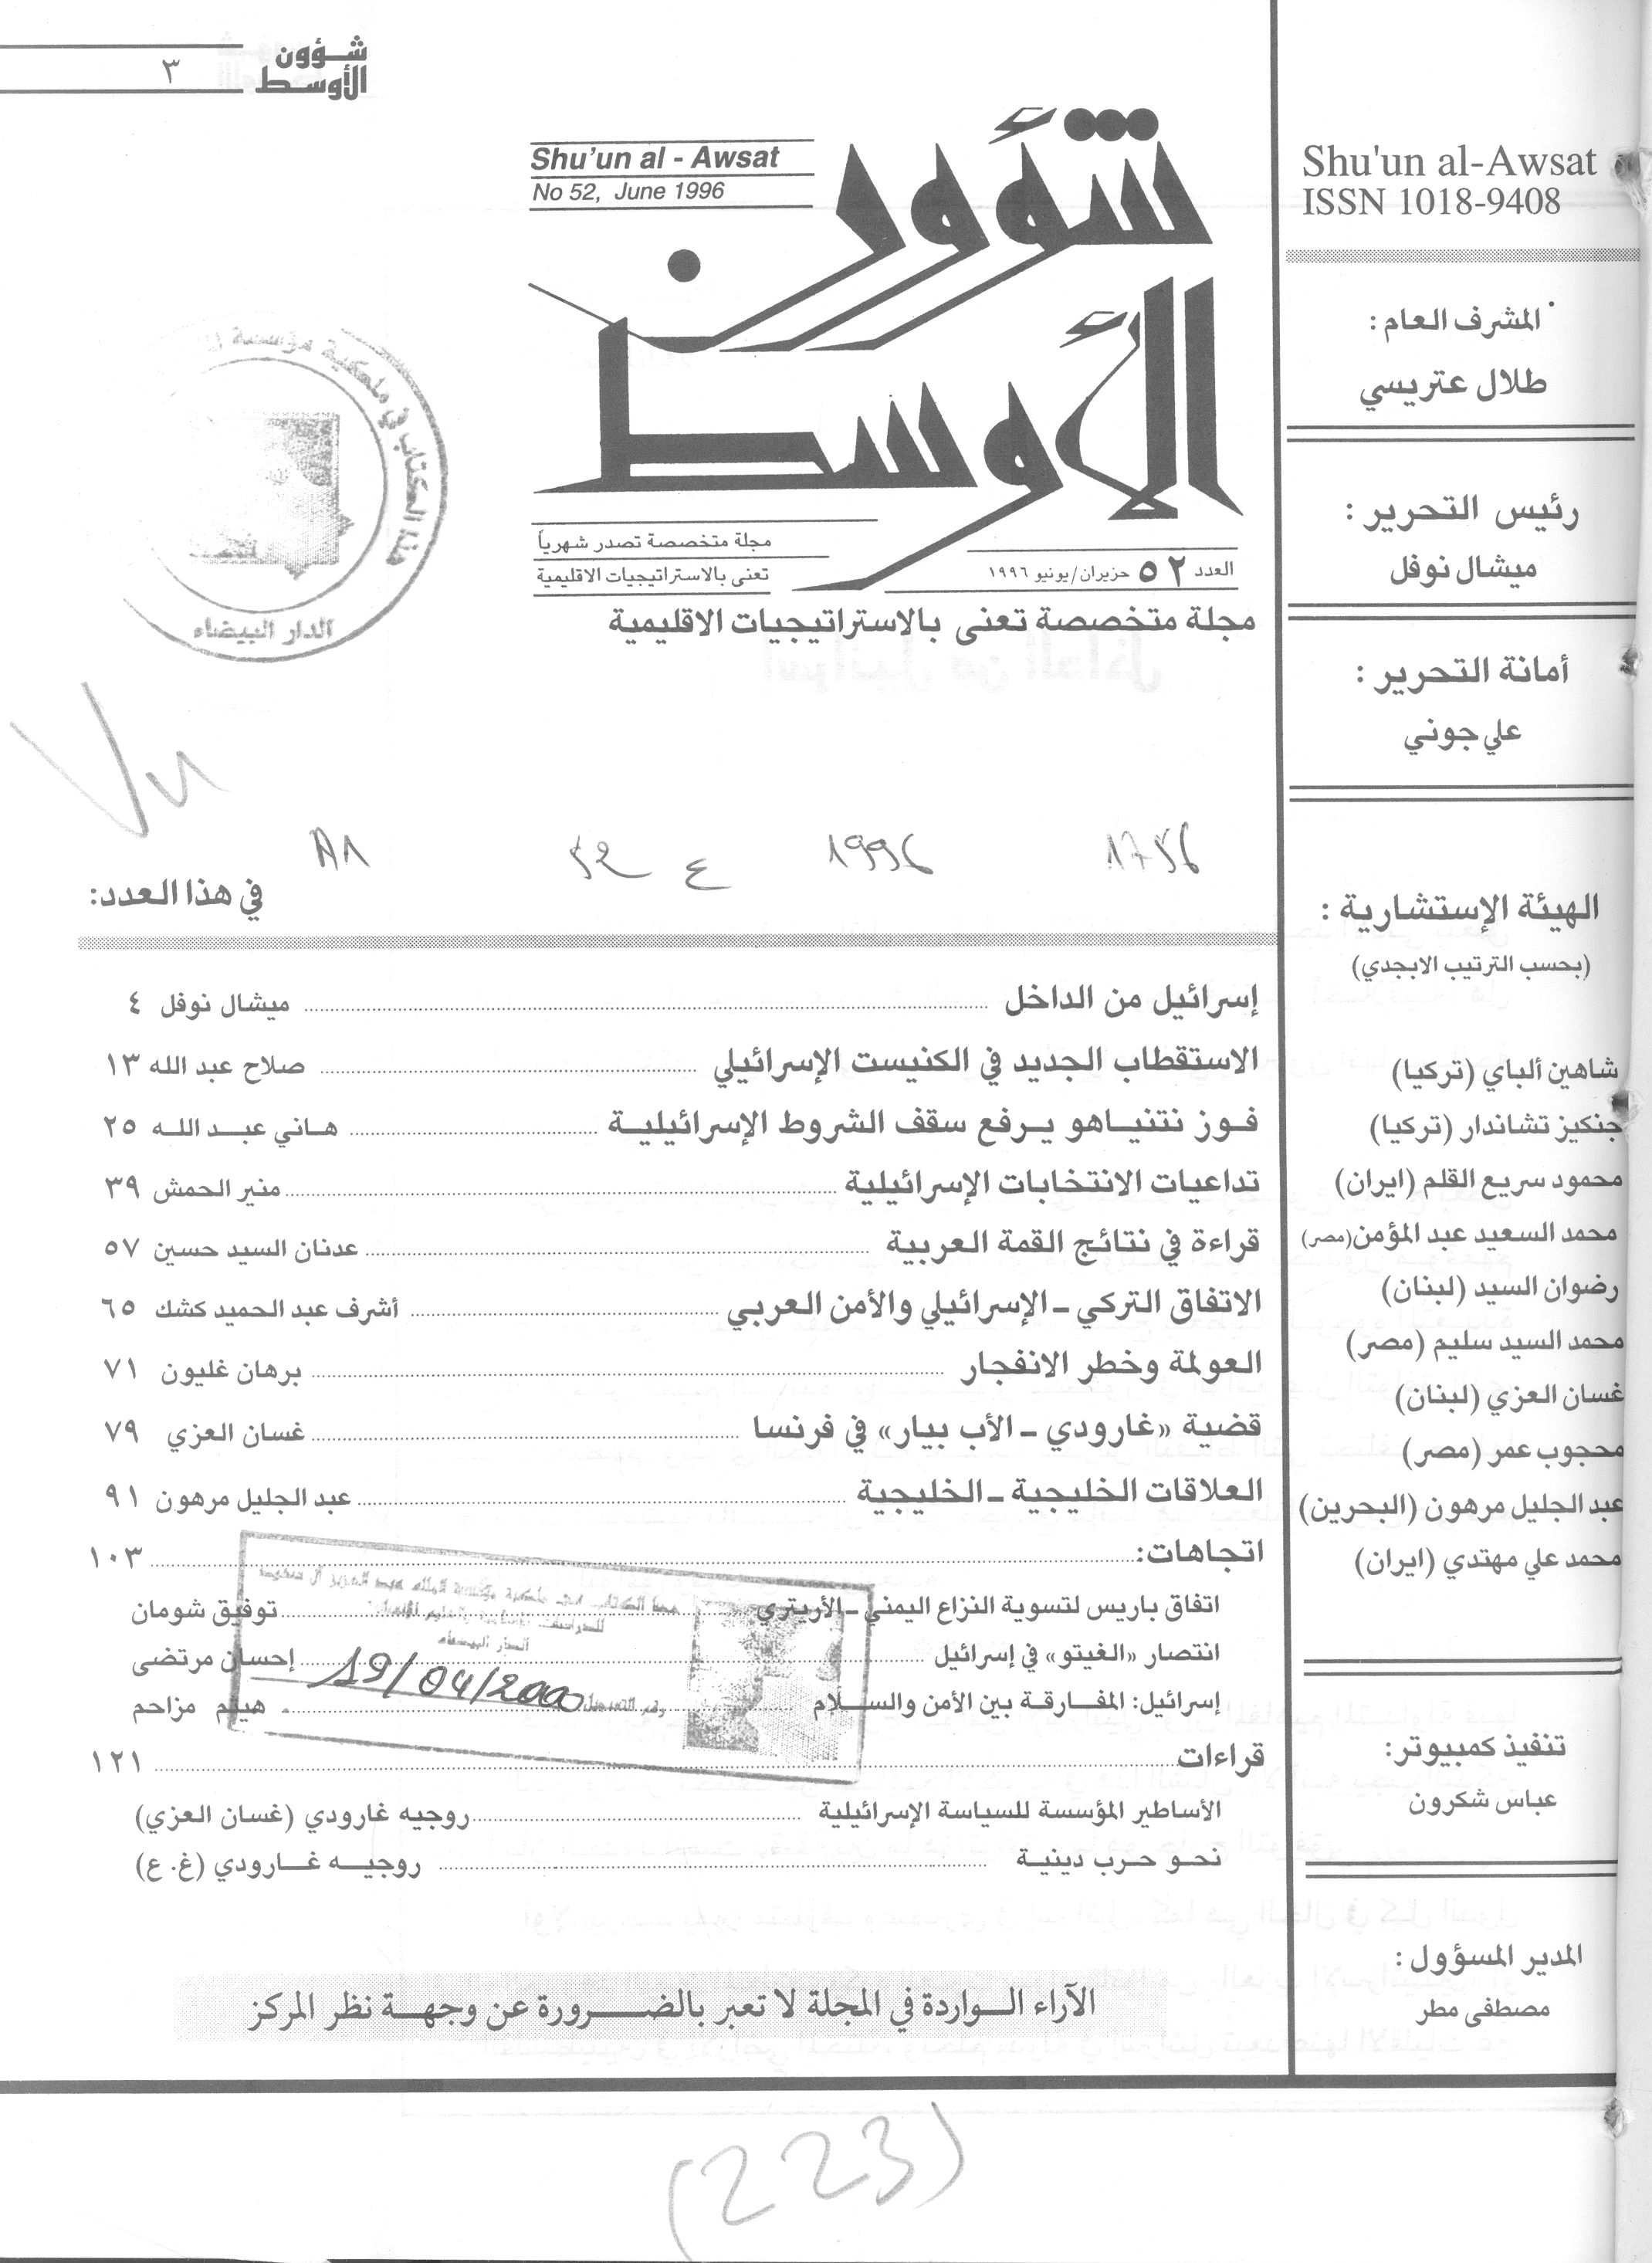 شؤون
الأوسط
٣
Shu'un al-Awsat
ISSN 1018-9408
المشرف العام :
طلال عتريسي
رئيس التحرير :
ميشال نوفل
أمانة التحرير :
علي جوني
الهيئة الإستشارية :
(بحسب الترتيب الابجدي)
شاهين ألباي (تركيا)
جنكيز تشاندار (تركيا)
محمود سريع القلم (ايران)
محمد السعيد عبد المؤمن(مصر)
رضوان السيد (لبنان)
محمد السيد سليم (مصر)
غسان العزي (لبنان)
محجوب عمر (مصر)
عبد الجليل مرهون (البحرين)
محمد علي مهتدي (ايران)
تنفيذ كمبيوتر:
عباس شكرون
المدير المسؤول :
مصطفى مطر
Shu'un al - Awsat
No 52, June 1996
شؤون
الأوسط
مجلة متخصصة تصدر شهرياً
تعنى بالاستراتيجيات الاقليمية
العدد ٥٢ حزيران/يونيو ١٩٩٦
مجلة متخصصة تعنى بالاستراتيجيات الاقليمية
هذا الكتاب في ملكية مؤسسة
الدار البيضاء
1996
ع 52
في هذا العدد:
إسرائيل من الداخل ميشال نوفل ٤
الاستقطاب الجديد في الكنيست الإسرائيلي صلاح عبد الله ١٣
فوز نتنياهو يرفع سقف الشروط الإسرائيلية هاني عبد الله ٢٥
تداعيات الانتخابات الإسرائيلية منير الحمش ٣٩
قراءة في نتائج القمة العربية عدنان السيد حسين ٥٧
الاتفاق التركي ـ الإسرائيلي والأمن العربي أشرف عبد الحميد كشك ٦٥
العولمة وخطر الانفجار برهان غليون ٧١
قضية «غارودي ـ الأب بيار» في فرنسا غسان العزي ٧٩
العلاقات الخليجية ـ الخليجية عبد الجليل مرهون ٩١
اتجاهات: ١٠٣
اتفاق باريس لتسوية النزاع اليمني ـ الأريتري توفيق شومان
انتصار «الغيتو» في إسرائيل إحسان مرتضى
إسرائيل: المفارقة بين الأمن والسلام هيثم مزاحم
19/04/2000
قراءات ١٢١
الأساطير المؤسسة للسياسة الإسرائيلية روجيه غارودي (غسان العزي)
نحو حرب دينية روجيه غارودي (غ. ع)
الآراء الواردة في المجلة لا تعبر بالضرورة عن وجهة نظر المركز
(223)